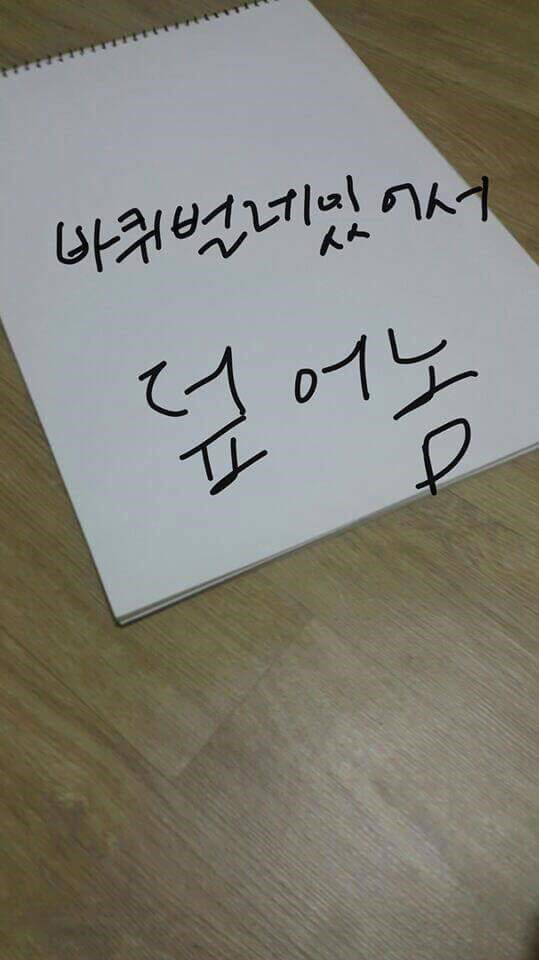 바퀴벌레있어서
덮어놈